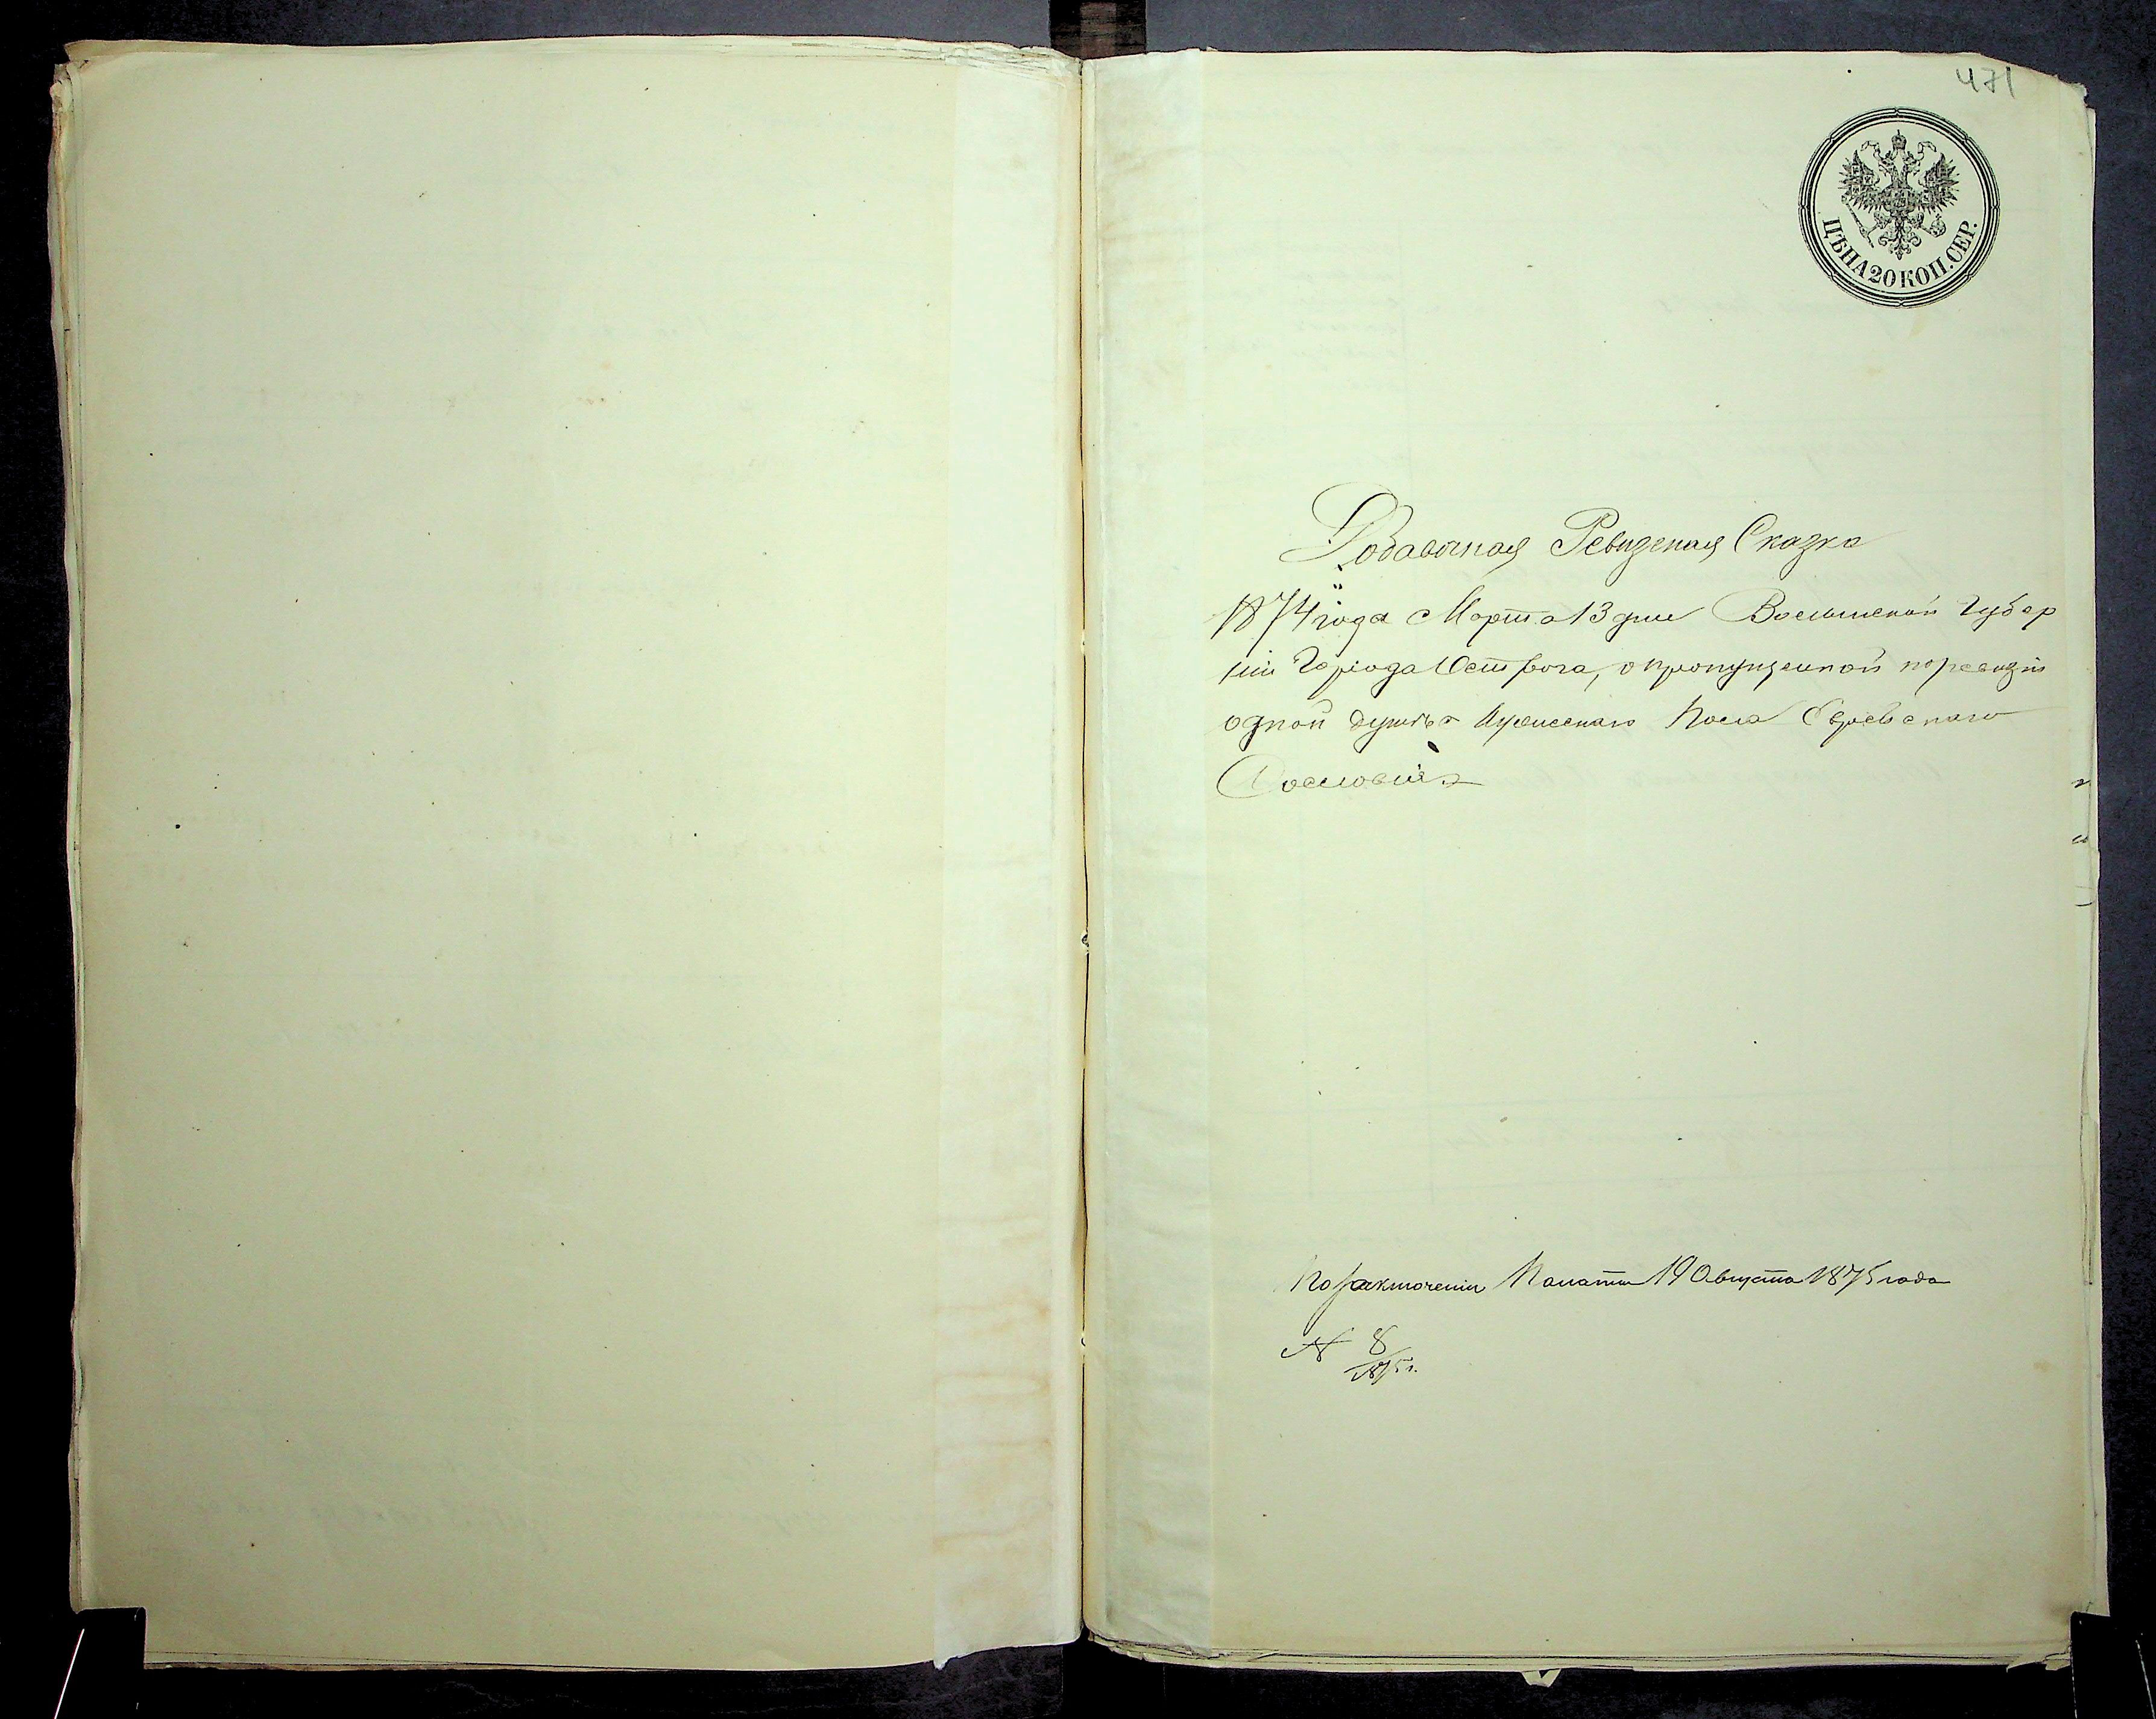 471
ЦѢНА 20 КОП. СЕР.
Добавочная Ревизская Сказка
1874 года Марта 13 дня Волынской Губер
ніи Города Острога, о пропущенной по ревизіи
одной душѣ Мужескаго Пола Еврейскаго
Сословія
По заключенію Палаты 19 Августа 1875 года
№ 8
1875 г.